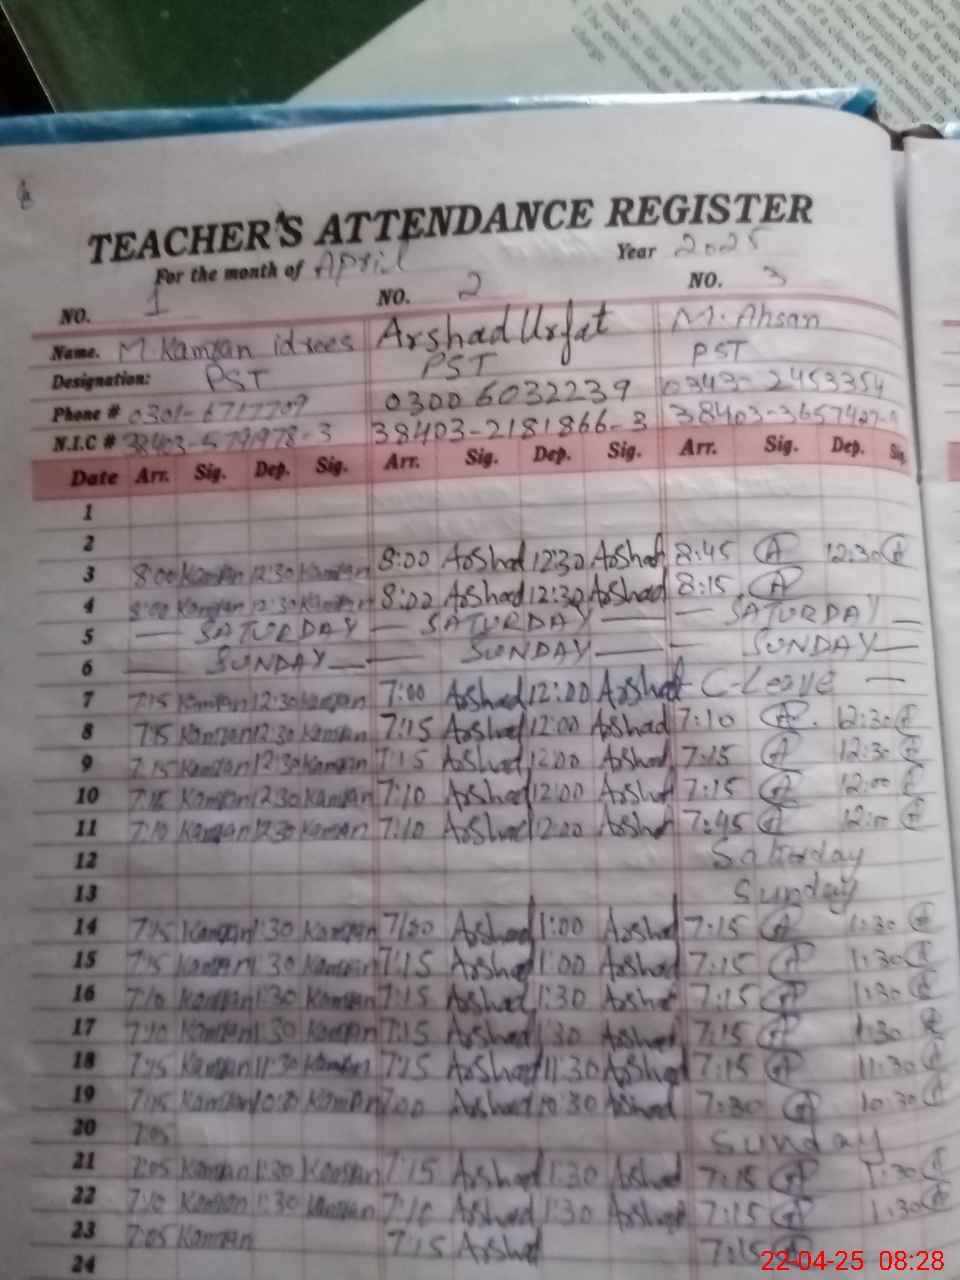 TEACHER'S ATTENDANCE REGISTER
For the month of April Year 2025
NO. 1 NO. 2 NO. 3
Name. M Kamran idrees Arshad Urfat M. Ahsan
Designation: PST PST PST
Phone # 0301-6717709 0300 6032239 0343-2453354
N.I.C # 38403-5791978-3 38403-2181866-3 38403-3657427-
Date Arr. Sig. Dep. Sig. Arr. Sig. Dep. Sig. Arr. Sig. Dep. Sig.
1
2
3 8:00 Kamran 12:30 Kamran 8:00 Arshad 12:30 Arshad 8:45 A 12:30 A
4 8:00 Kamran 12:30 Kamran 8:00 Arshad 12:30 Arshad 8:15 A
5 — SATURDAY — SATURDAY — — SATURDAY —
6 — SUNDAY — — SUNDAY — — SUNDAY —
7 7:15 Kamran 12:30 Kamran 7:00 Arshad 12:00 Arshad C-Leave —
8 7:15 Kamran 12:30 Kamran 7:15 Arshad 12:00 Arshad 7:10 A. 12:30
9 7:15 Kamran 12:30 Kamran 7:15 Arshad 12:00 Arshad 7:15 A 12:30
10 7:15 Kamran 12:30 Kamran 7:10 Arshad 12:00 Arshad 7:15 A 12:00
11 7:10 Kamran 12:30 Kamran 7:10 Arshad 12:00 Arshad 7:45 A 12:00
12 Saturday
13 Sunday
14 7:15 Kamran 1:30 Kamran Arshad 1:00 Arshad 7:15 A 1:30
15 7:15 Kamran 1:30 Kamran 7:15 Arshad 1:00 Arshad 7:15 A 1:30
16 7:10 Kamran 1:30 Kamran 7:15 Arshad 1:30 Arshad 7:15 A 1:30
17 7:10 Kamran 1:30 Kamran 7:15 Arshad 1:30 Arshad 7:15 A 1:30
18 7:15 Kamran 11:30 Kamran 7:15 Arshad 11:30 Arshad 7:15 A 11:30
19 7:15 Kamran Kamran 7:00 Arshad 10:30 Arshad 7:30 A 10:30
20 7:05 Sunday
21 7:05 Kamran 1:30 Kamran 7:15 Arshad 1:30 Arshad 7:15 A 1:30
22 7:10 Kamran 1:30 Kamran 7:10 Arshad 1:30 Arshad 7:15 A 1:30
23 7:05 Kamran 7:15 Arshad 7:15 A
24
22-04-25 08:28